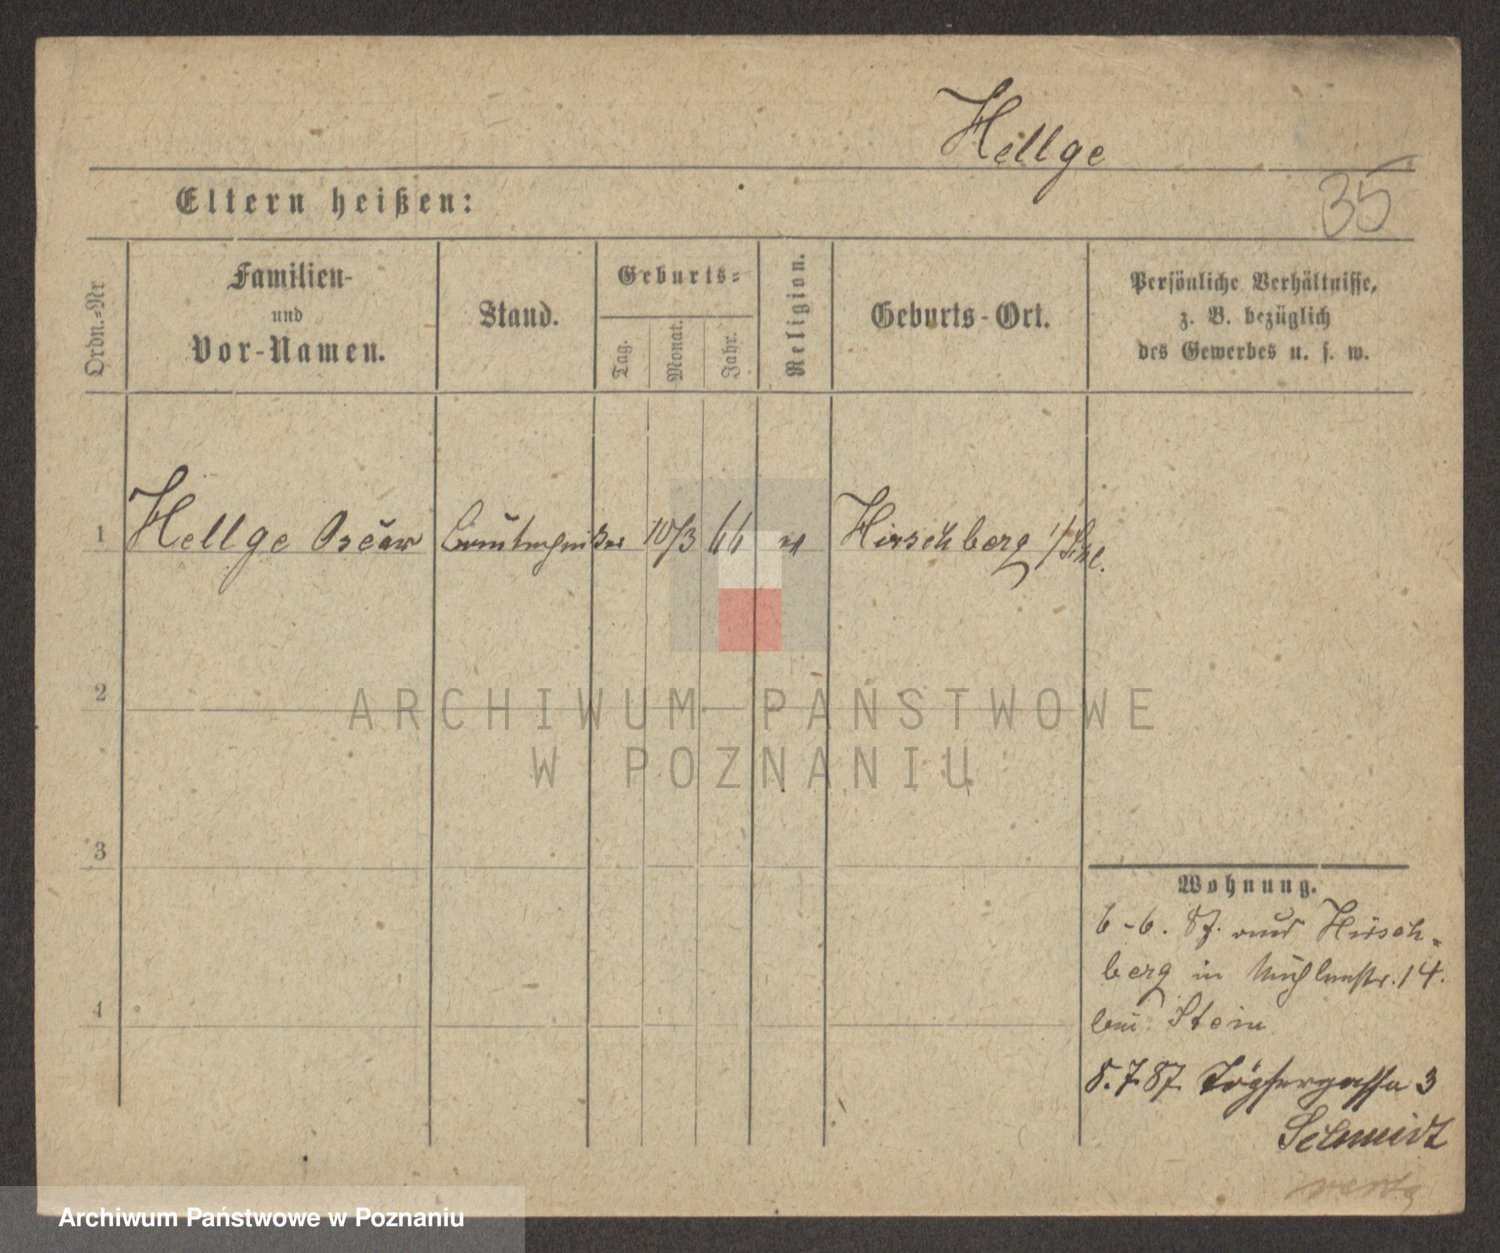 Hellge
35
Eltern heißen:
Ordn.=Nr
Familien-
und
Vor-Namen.
Stand.
Geburts=
Tag.
Monat.
Jahr.
Religion.
Geburts-Ort.
Persönliche Verhältnisse,
z. B. bezüglich
des Gewerbes u. s. w.
1 Hellge Oscar Bautechniker 10/3 66 ev Hirschberg i/Schl.
2
ARCHIWUM PAŃSTWOWE
W POZNANIU
3
Wohnung.
6-6. 87. aus Hirsch-
berg in Mühlenstr. 14.
bei Stein
4
5.7.87 Töpfergasse 3
Schmidt
verte
Archiwum Państwowe w Poznaniu